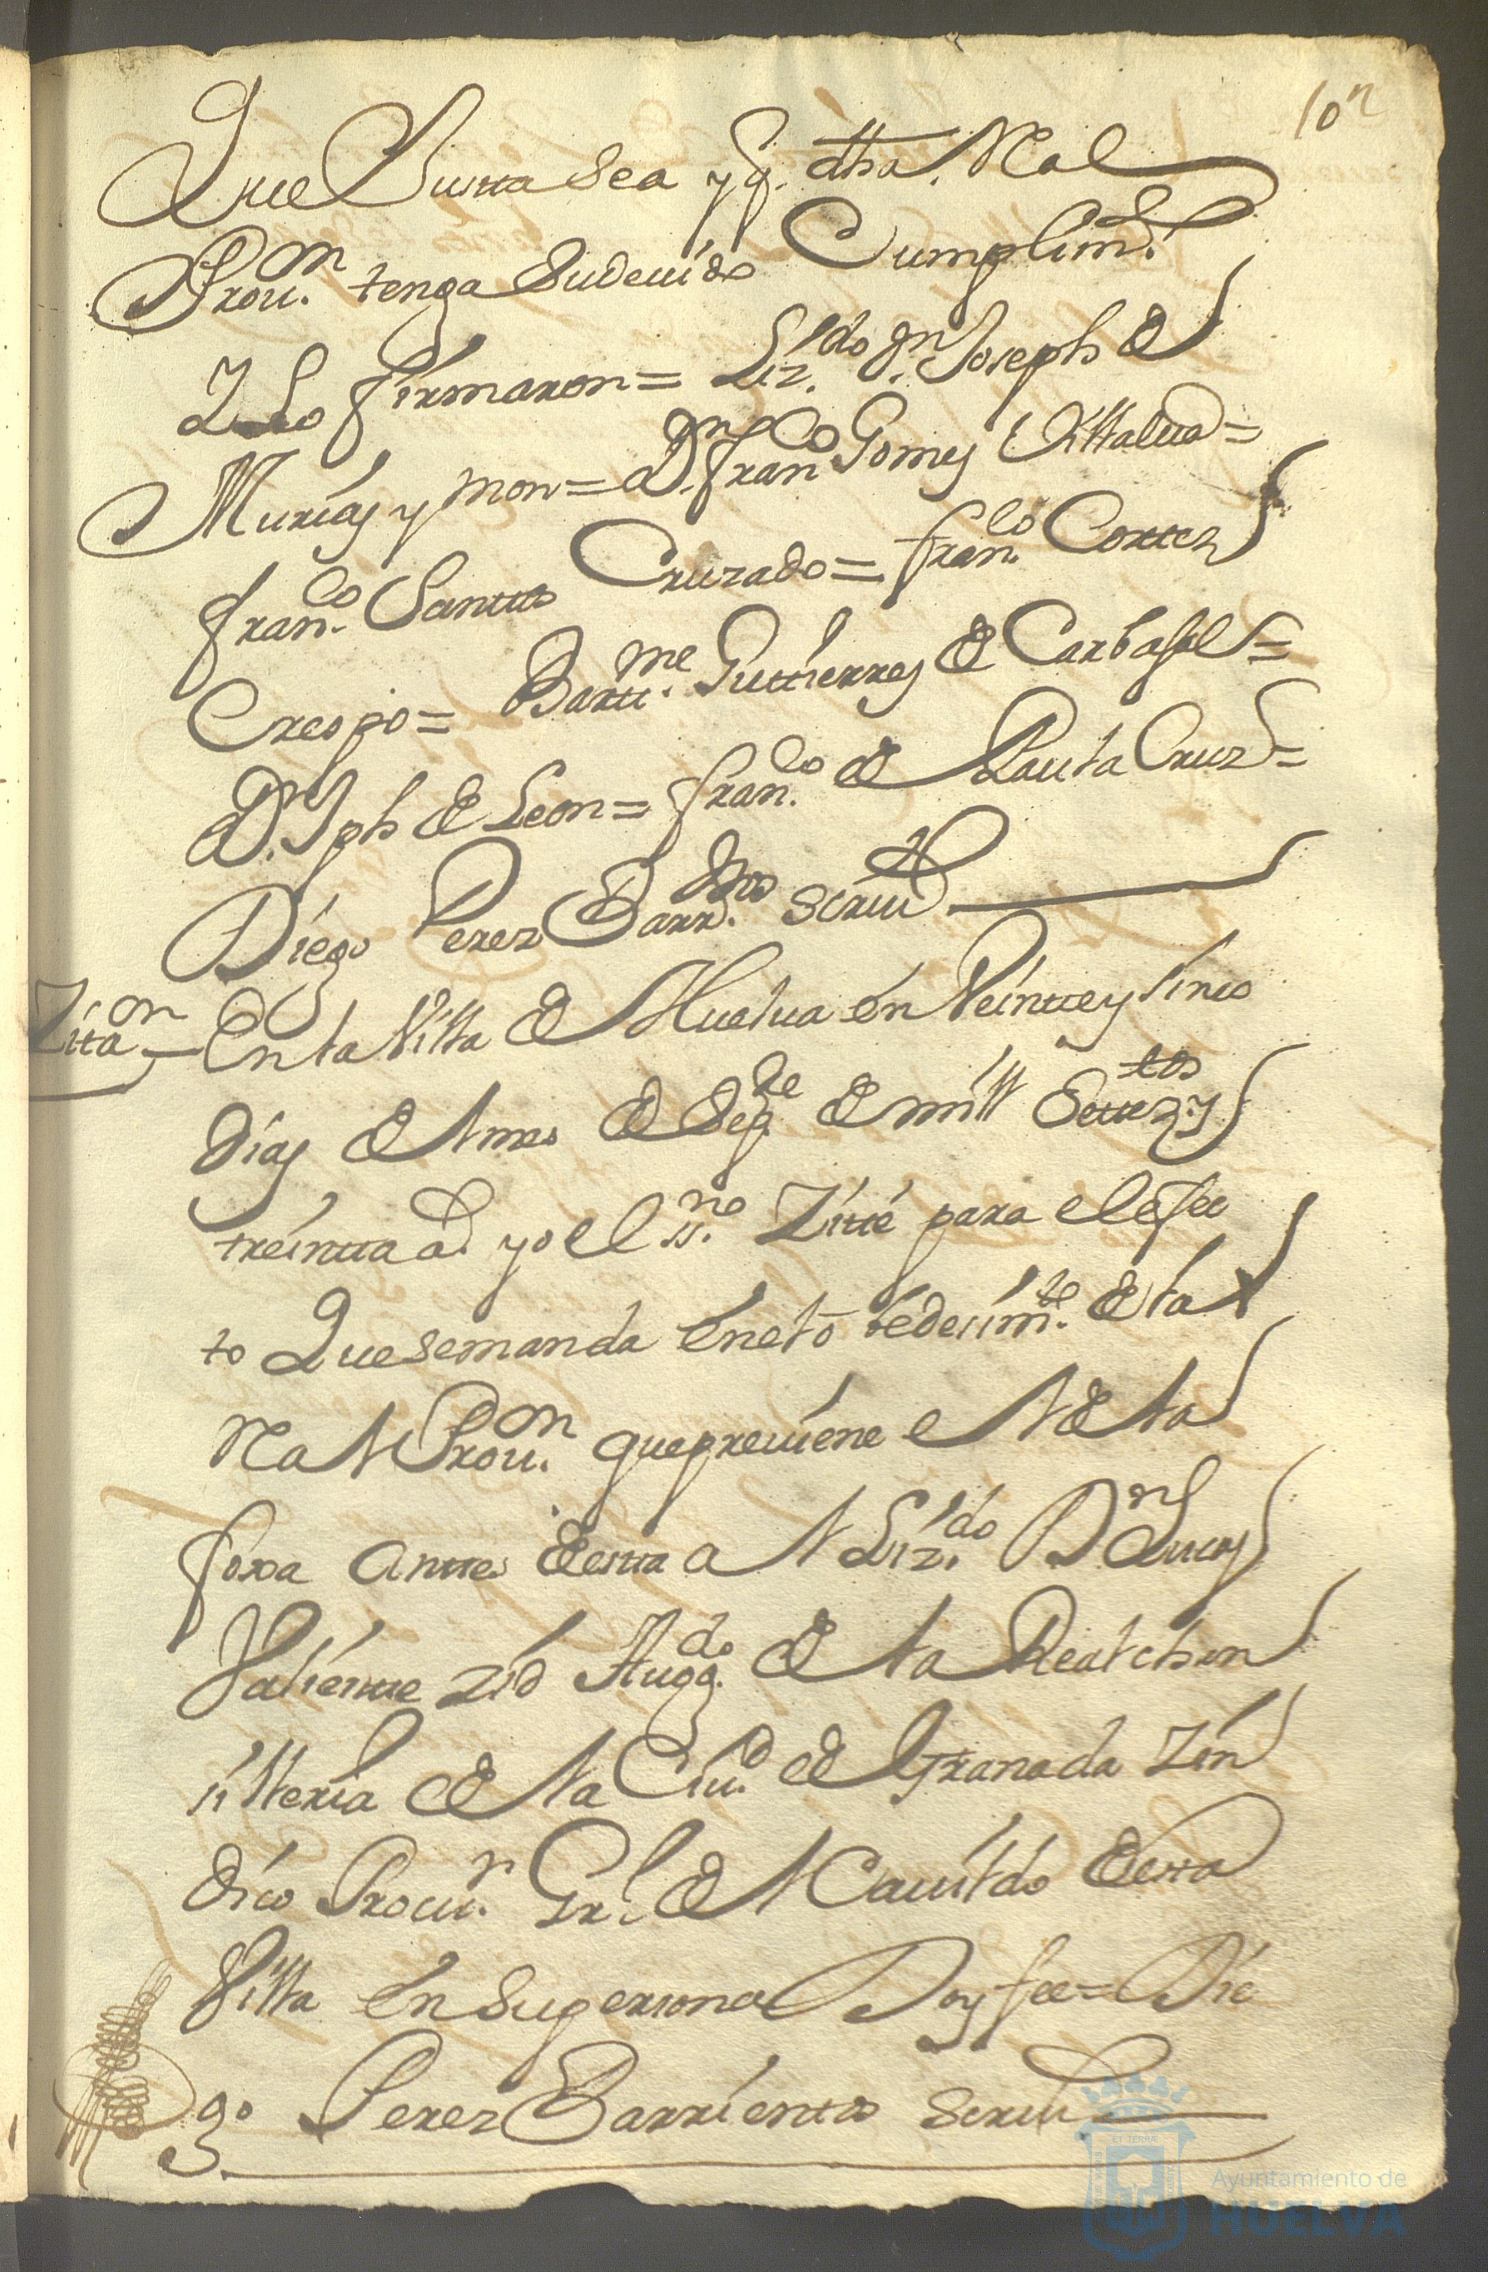 10n
Que Justta sea y q. dha. Real
Prou.on tenga Sudeuido Cumplim.to
Y Lo firmaron = Liz.do Dn. Joseph de
Murias y mon = Dn. fran.co Gomez Villalua =
fran.co Santtos Cruzado = fran.co Corttez
Crespo = Bartt.me Guttierrez de Carbajal =
D. Jph de Leon = fran.co de Paula Cruz =
Diego Perez Barr.tos scriu
Zitaon = En la Villa de Huelua en Veintte y Sinco
Dias del mes de Sep.re de mill Settez.tos y
treintta a. yo el ss.no Zitte para el efec
to Que se manda En el obedesim.to de la
Real Prou.on que preuiene el de la
foxa Anttes destta al Liz.do Dn. Lucas
Valientte zid Auog.do de la Real chan
silleria de la Ciu.d de Granada Zin
dico Procu.r Grl. del Cauildo destta
Villa En Su persona Doy fee = Die
go Perez Barrienttos scriu
Ayuntamiento de
HUELVA